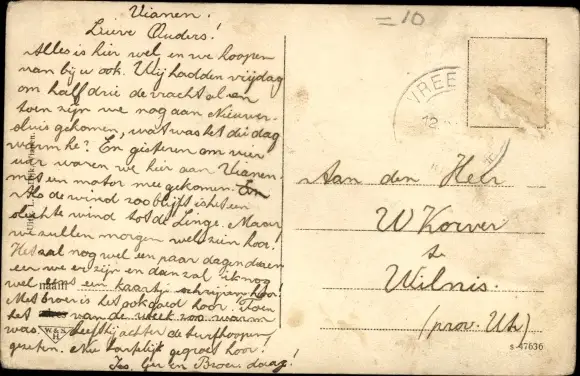 Vianen!
Lieve Ouders!
Alles is hier wel en we hoopen
van bij u ook. Wij hadden vrijdag
om half drie de vracht al en
toen zijn we nog aan Nieuwer-
sluis gekomen, wat was het die dag
warm hè? En gisteren om vier
uur waren we hier aan Vianen.
met een motor mee gekomen. En
Als de wind zoo blijft is het een
slechte wind tot de Linge. Maar
we zullen morgen wel zien hoor!
Het zal nog wel een paar dagen duren
eer we er zijn en dan zal ik nog
wel eens een kaartje schrijven hoor!
Met broer is het ook goed hoor. Toen
het van de week zoo warm
was, heeft hij achter de turfhoopen
gezeten. Nu hartelijk gegroet hoor!
Ger en Broer daag!
=10
VREE
12
Aan den Heer
W Koever
te
Wilnis.
(prov. Utr)
naam
W. & S.
H.
S-47636